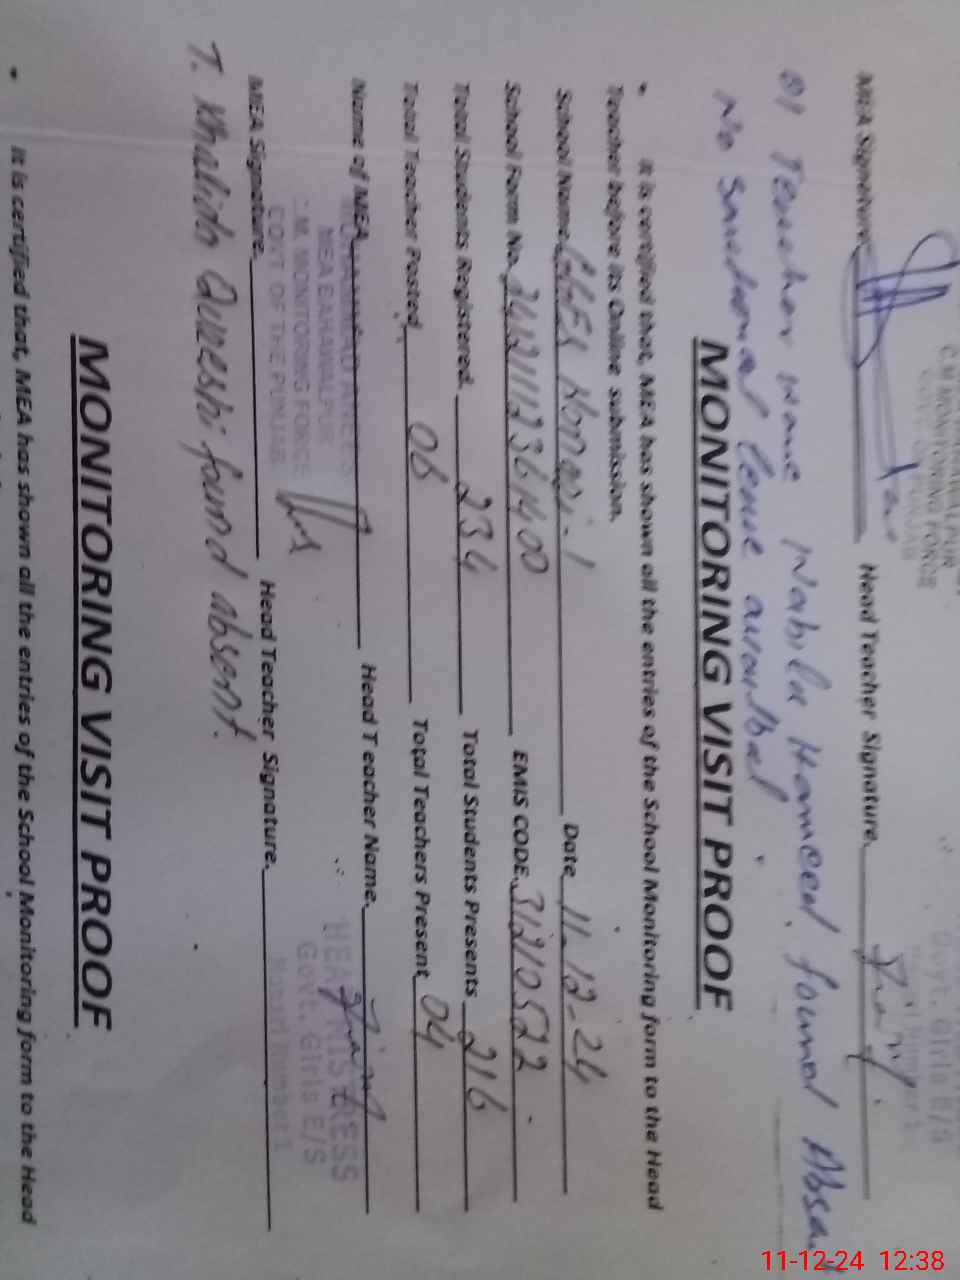 C.M MONITORING FORCE
MEA Signature Head Teacher Signature.
01 Teacher name Nabila Hameed found Absent
No Sanctional leave
MONITORING VISIT PROOF
• It is certified that, MEA has shown all the entries of the School Monitoring form to the Head
Teacher before its Online submission.
School Name GGES Date 11-12-24
School Form No. EMIS CODE. 31210522
Total Students Registered. 234 Total Students Presents 216
Total Teacher Posted. 06 Total Teachers Present 04
Name of MEA Head Teacher Name.
MEA BAHAWALPUR
C.M. MONITORING FORCE
GOVT OF THE PUNJAB
HEADMISTRESS
Govt. Girls E/S
MEA Signature. Head Teacher Signature.
T. Khalida Qureshi found absent.
MONITORING VISIT PROOF
• It is certified that, MEA has shown all the entries of the School Monitoring form to the Head
11-12-24 12:38